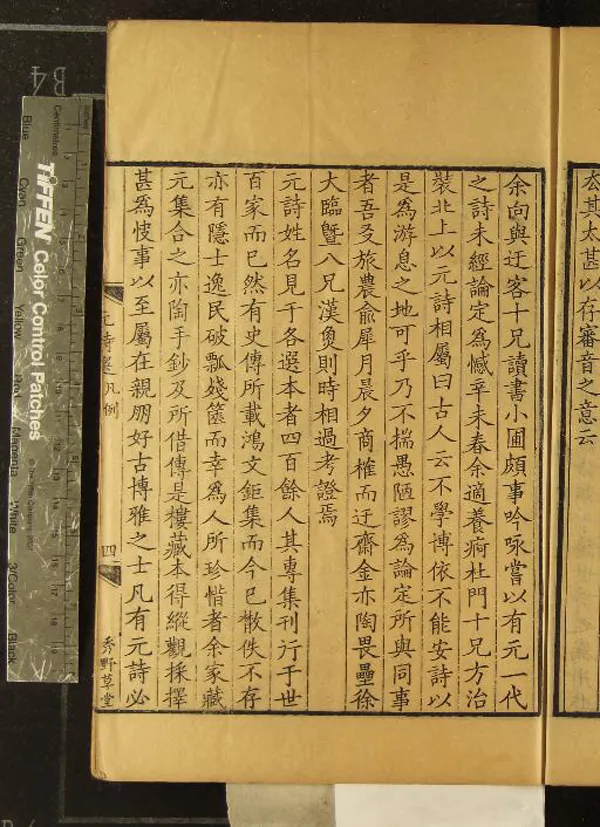 厺其太甚以存審音之意云
余向與迂客十兄讀書小圃頗事吟咏嘗以有元一代
之詩未經論定為憾辛未春余適養疴杜門十兄方治
裝北上以元詩相屬曰古人云不學博依不能安詩以
是為游息之地可乎乃不揣愚陋謬為論定所與同事
者吾友旅農俞犀月晨夕商榷而迂齋金亦陶畏壘徐
大臨曁八兄漢魚則時相過考證焉
元詩姓名見于各選本者四百餘人其專集刊行于世
百家而已然有史傳所載鴻文鉅集而今已散佚不存
亦有隱士逸民破瓢殘篋而幸為人所珍惜者余家藏
元集合之亦陶手鈔及所借傳是樓藏本得縱觀採擇
甚為快事以至屬在親朋好古博雅之士凡有元詩必
元詩選凡例
四
秀野草堂
B4
TIFFEN Color Control Patches
© The Tiffen Company, 2007
Centimetres
Inches
Blue
Cyan
Green
Yellow
Red
Magenta
White
3/Color
Black